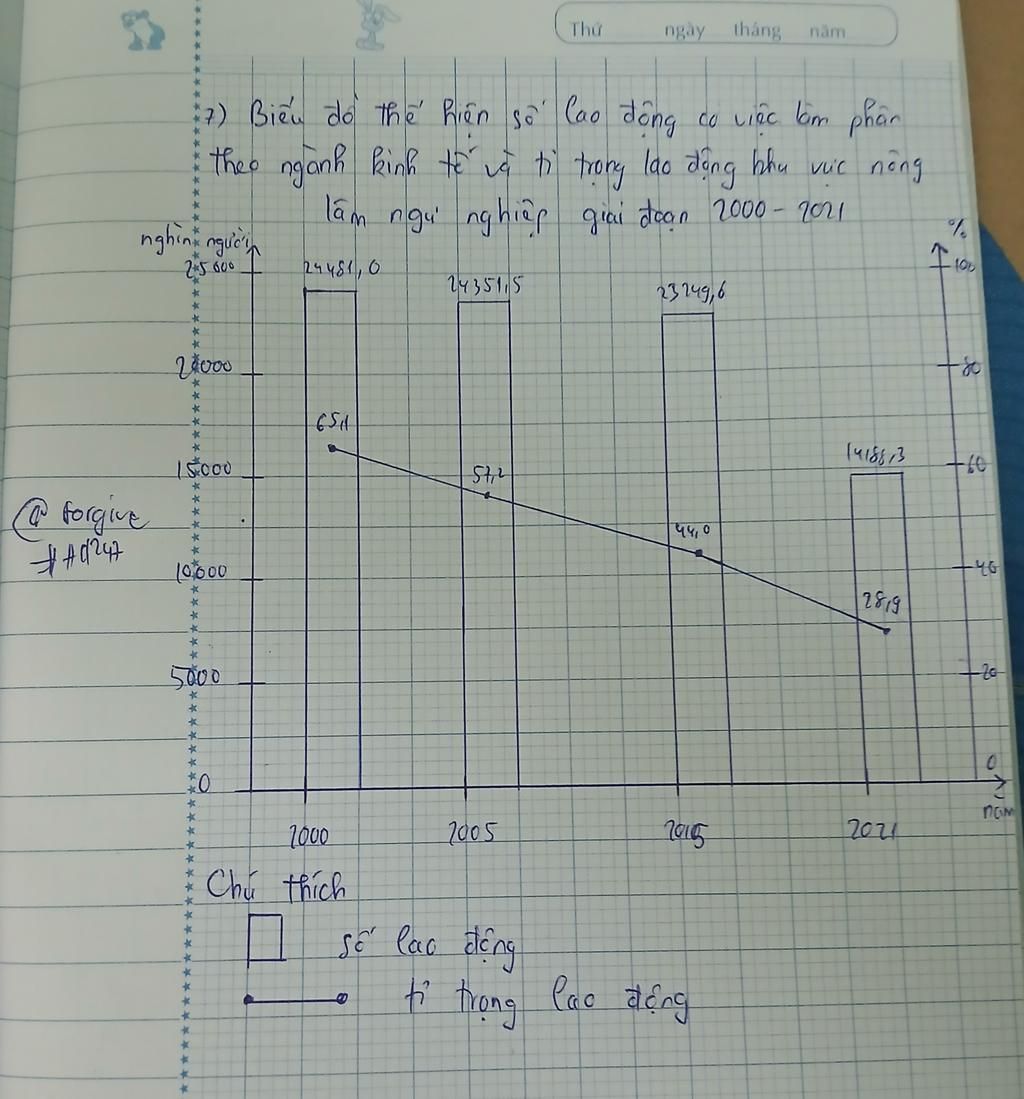 Thứ ngày tháng năm
7) Biểu đồ thể hiện số lao động có việc làm phân
theo ngành kinh tế và tỉ trọng lao động khu vực nông
lâm ngư nghiệp giai đoạn 2000 - 2021
nghìn người
%
25000
24481,0
24351,5
23249,6
100
20000
80
65,1
15000
57,2
14188,3
60
@ forgive
44,0
10000
40
28,9
5000
20
0
0
năm
2000 2005 2015 2021
Chú thích
số lao động
tỉ trọng lao động